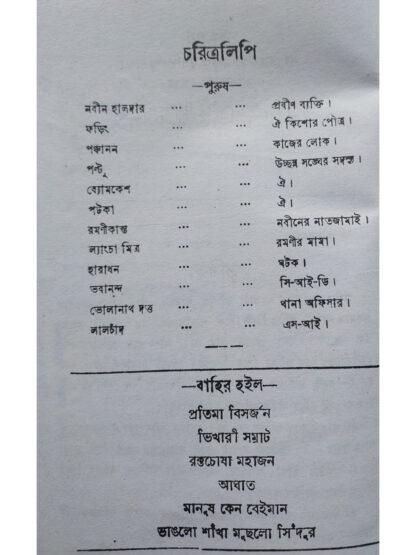 চরিত্রলিপি
—পুরুষ—
নবীন হালদার ... ... প্রবীণ ব্যক্তি।
ফড়িং ... ... ঐ কিশোর পৌত্র।
পঞ্চানন ... ... কাজের লোক।
পল্টু ... ... উচ্ছন্ন সঙ্ঘের সদস্য।
ব্যোমকেশ ... ... ঐ।
পটকা ... ... ঐ।
রমণীকান্ত ... ... নবীনের নাতজামাই।
ল্যাংচা মিত্র ... ... রমণীর মামা।
হারাধন ... ... ঘটক।
ভবানন্দ ... ... সি-আই-ডি।
ভোলানাথ দত্ত ... ... থানা অফিসার।
লালচাঁদ ... ... এস-আই।
—বাহির হইল—
প্রতিমা বিসর্জন
ভিখারী সম্রাট
রক্তচোষা মহাজন
আঘাত
মানুষ কেন বেইমান
ভাঙলো শাঁখা মুছলো সিঁদুর